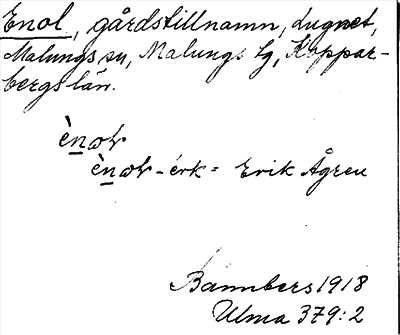 Enol, gårdstillnamn, Lugnet,
Malungs sn, Malungs tg, Koppar-
bergs län.
ènoɫ
ènoɫ-érk = Erik Ågren
Bannbers 1918
Ulma 379:2